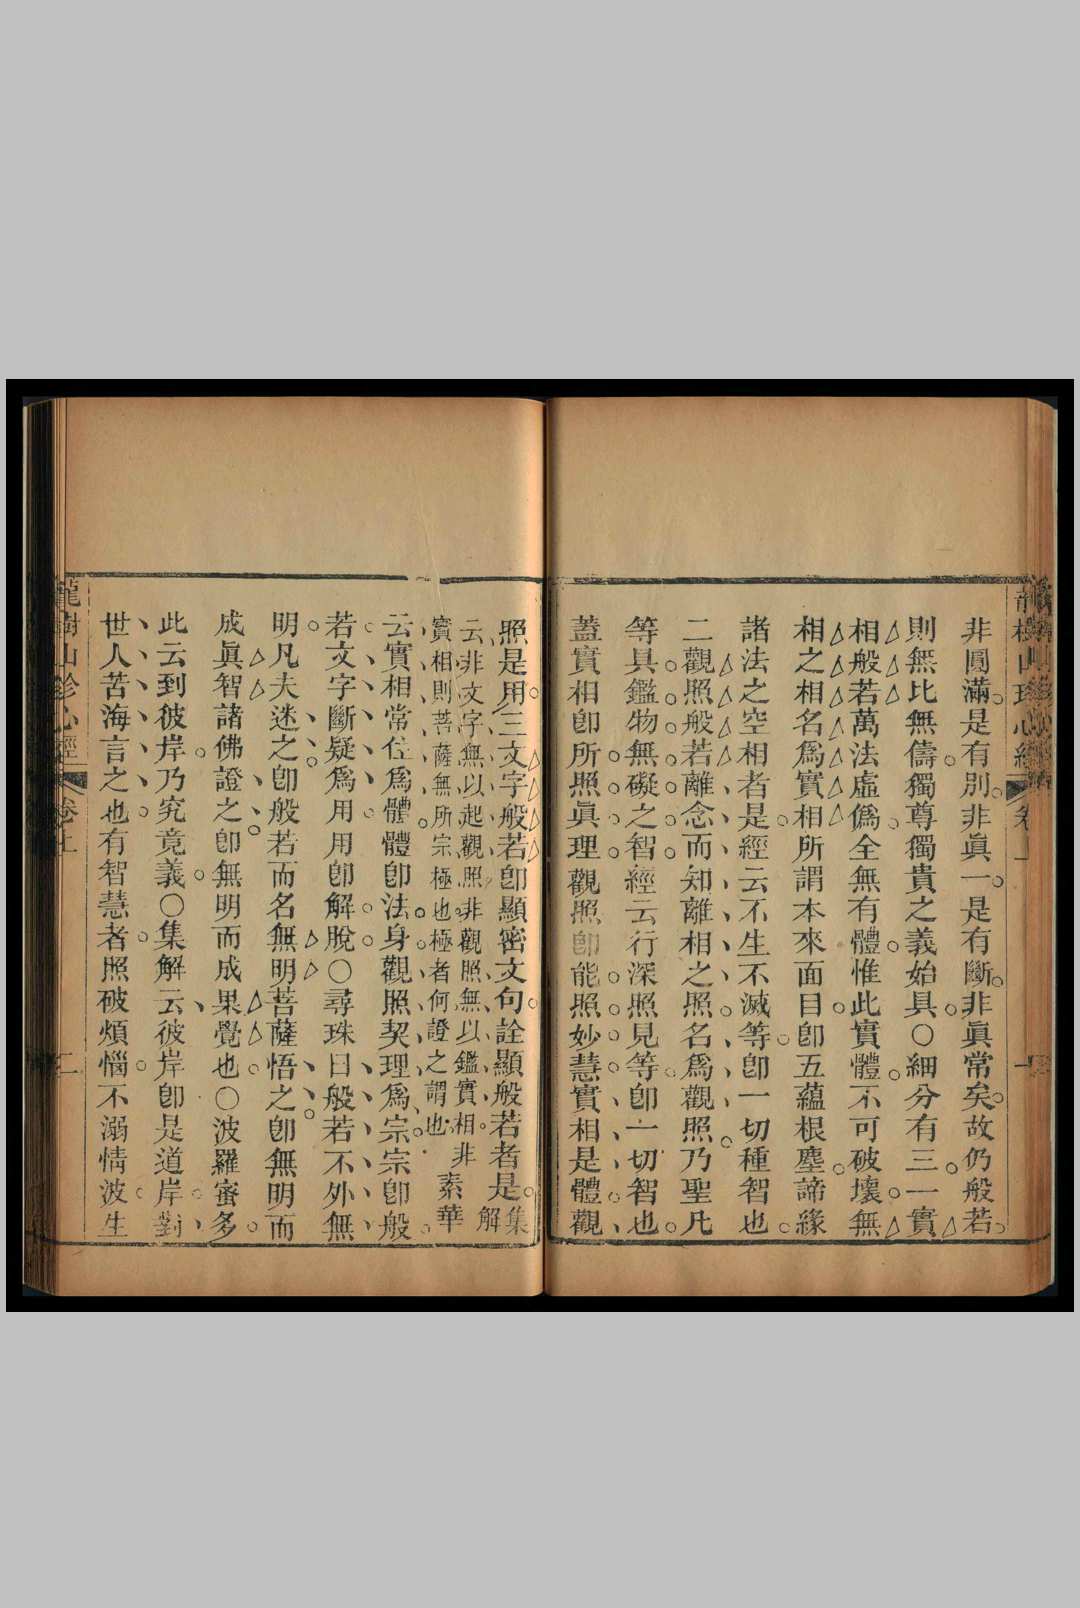 非圓滿是有別非眞一是有斷非眞常矣故仍般若
則無比無儔獨尊獨貴之義始具〇細分有三一實
相般若萬法虛僞全無有體惟此實體不可破壞無
相之相名爲實相所謂本來面目卽五蘊根塵諦緣
諸法之空相者是經云不生不滅等卽一切種智也
二觀照般若離念而知離相之照名爲觀照乃聖凡
等具鑑物無礙之智經云行深照見等卽一切智也
蓋實相卽所照眞理觀照卽能照妙慧實相是體觀
照是用三文字般若卽顯密文句詮顯般若者是集解
云非文字無以起觀照非觀照無以鑑實相非
實相則菩薩無所宗極也極者何證之謂也
素華
云實相常住爲體體卽法身觀照契理爲宗宗卽般
若文字斷疑爲用用卽解脫〇尋珠曰般若不外無
明凡夫迷之卽般若而名無明菩薩悟之卽無明而
成眞智諸佛證之卽無明而成果覺也〇波羅蜜多
此云到彼岸乃究竟義〇集解云彼岸卽是道岸對
世人苦海言之也有智慧者照破煩惱不溺情波生
龍樹山珍心經
卷上
二